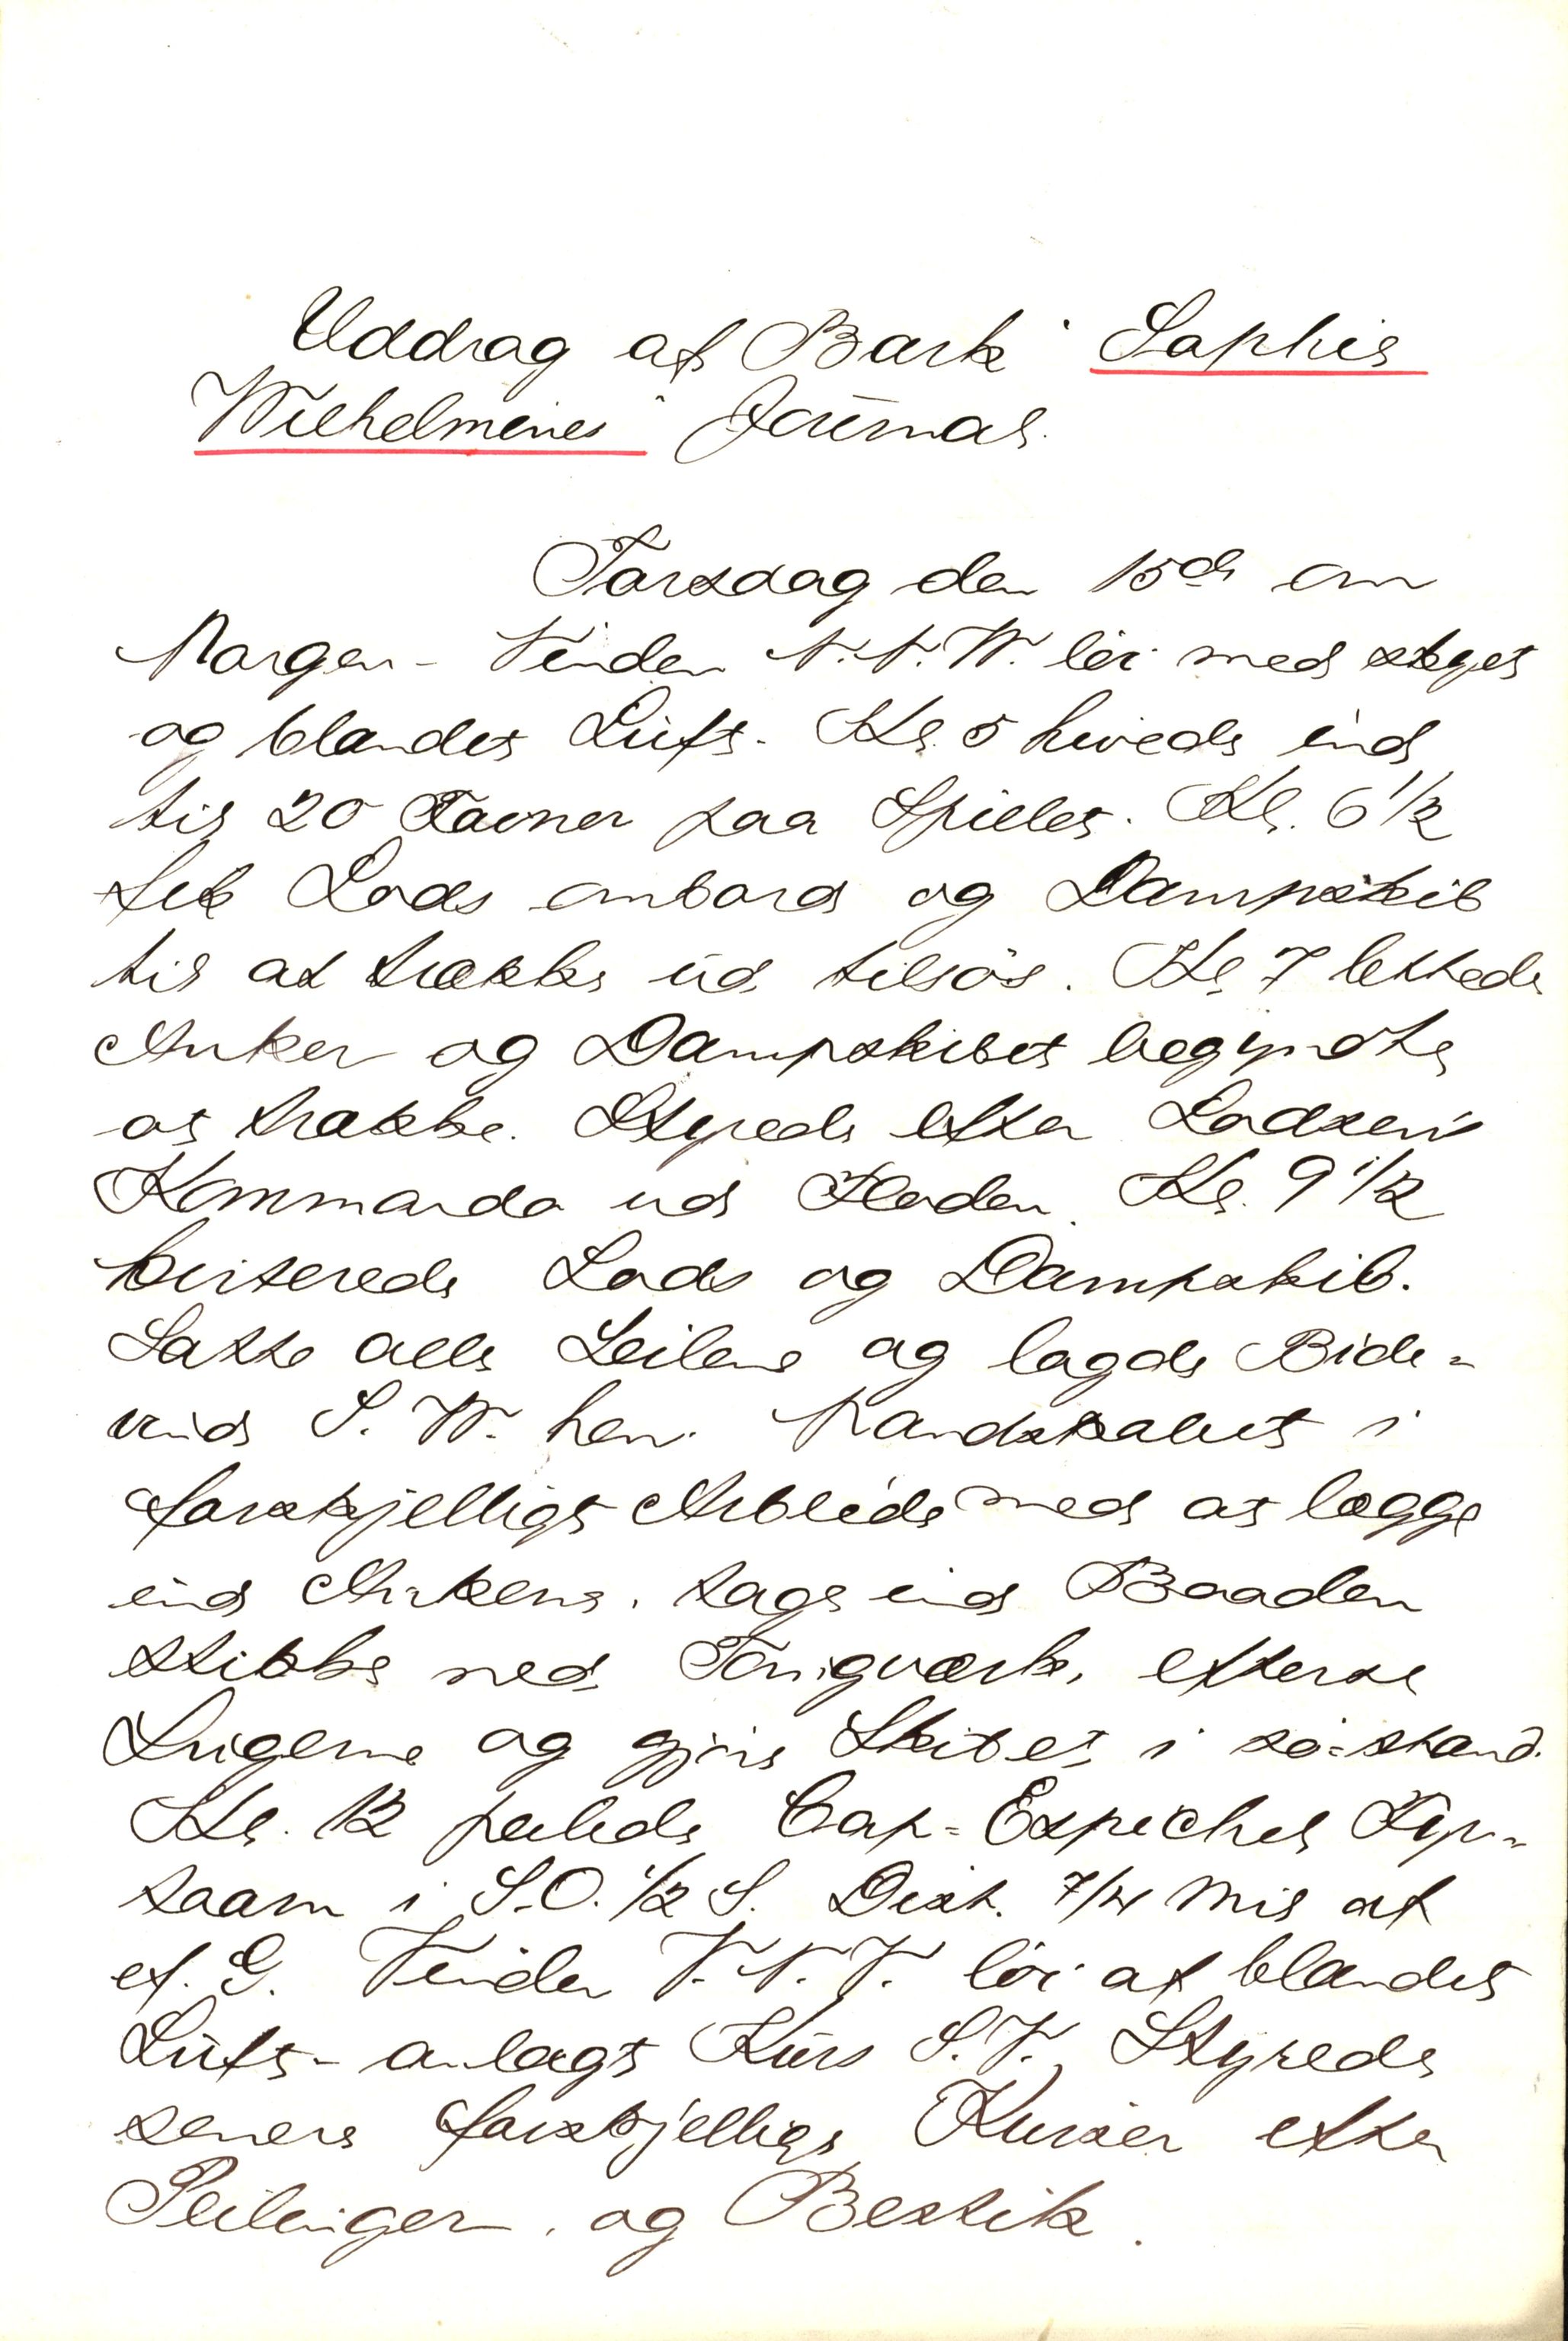 Uddrag af Bark "Sophie
Wilhelmines" Journal.
Torsdag den 15de om
Morgen - Vinden N.N.W. löi med skyet
og blandet Luft - Kl. 5 hivede ind
til 20 Favner paa Spillet. Kl. 6 1/2
fik Lods ombord og Dampskib
til at trække ud tilsös. Kl. 7 lettede
Anker og Dampskibet begyndte
at trække. Styrede efter Lodsens
Kommando ud Floden. Kl. 9 1/2
kviterede Lods og Dampskib.
Satte alle Seilene og lagde Bide-
vind S. W. hen. Mandskabet i
forskjelligt Arbeide med at lægge
ind Ankerne, tage ind Baaden
stikke ned Tougværk, efterse
Lugerne og gjöre Skibet i sö-stand.
Kl. 12 peilede Cap-Espichel Fyr-
taarn i S.O. 1/2 S. Dist. 7/4 Mil af
ef. G. Vinden V.N.V. löi af blandet
Luft - anlagt Kurs S.V. Styrede
senere forskjellige Kurser efter
Peilinger, og Bestik.